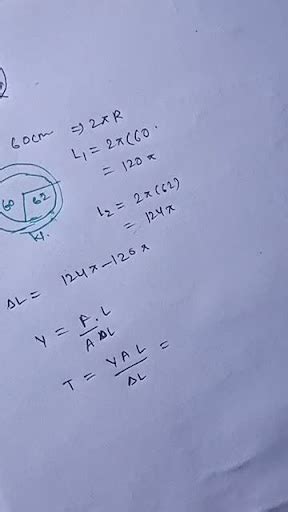 60cm ⇒ 2πR
L₁ = 2π(60
= 120π
60 62
L₂ = 2π(62)
= 124π
ΔL = 124π - 120π
Y = F.L / A ΔL
T = YAL / ΔL =